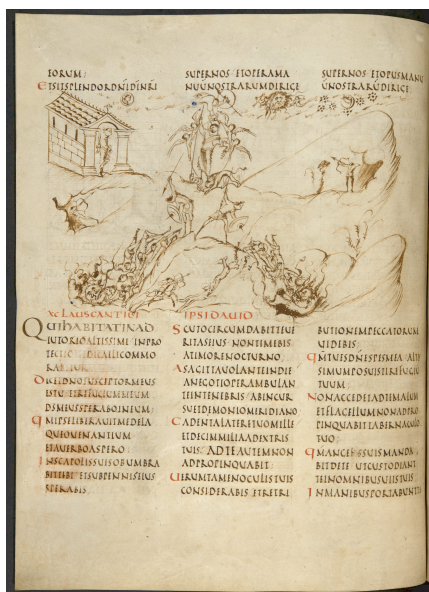 EORUM;
ETSITSPLENDORDNIDINRI
SUPERNOS ETOPERAMA
NUUNOSTRARUMDIRICE
SUPERNOS ETOPUSMANU
UNOSTRARUDIRICE
XC LAUSCANTICI
QUIHABITATINAD
IUTORIOALTISSIMI INPRO
TECTIO DICAELICOMMO
RABITUR
DICETDNOSUSCEPTORMEUS
DSMEUSSPERABOINEUM;
QMIPSELIBERAUITMEDELA
QUEOUENANTIUM
ETAUERBOASPERO
INSCAPULISSUISOBUMBRA
BITTIBI ETSUBPENNISEIUS
SPERABIS
IPSIDAUID
SCUTOCIRCUMDABITTEUE
RITASEIUS NONTIMEBIS
ATIMORENOCTURNO,
ASAGITTAUOLANTEINDIE
ANEGOTIOPERAMBULAN
TEINTENEBRIS ABINCUR
SUETDEMONIOMERIDIANO
CADENTALATERETUOMILLE
ETDECEMMILIAADEXTRIS
TUIS ADTEAUTEMNON
ADPROPINQUABIT
UERUMTAMENOCULISTUIS
CONSIDERABIS ETRETRI
BUTIONEMPECCATORUM
UIDEBIS;
QMTUESDNESPESMEA ALTIS
SIMUMPOSUISTIREFUGIU
TUUM
NONACCEDETADTEMALUM
ETFLAGELLUMNONADPRO
PINQUABITTABERNACULO
TUO;
QMANGELISSUISMANDA
BITDETE UTCUSTODIANT
TEINOMNIBUSUIISTUIS
INMANIBUSPORTABUNT